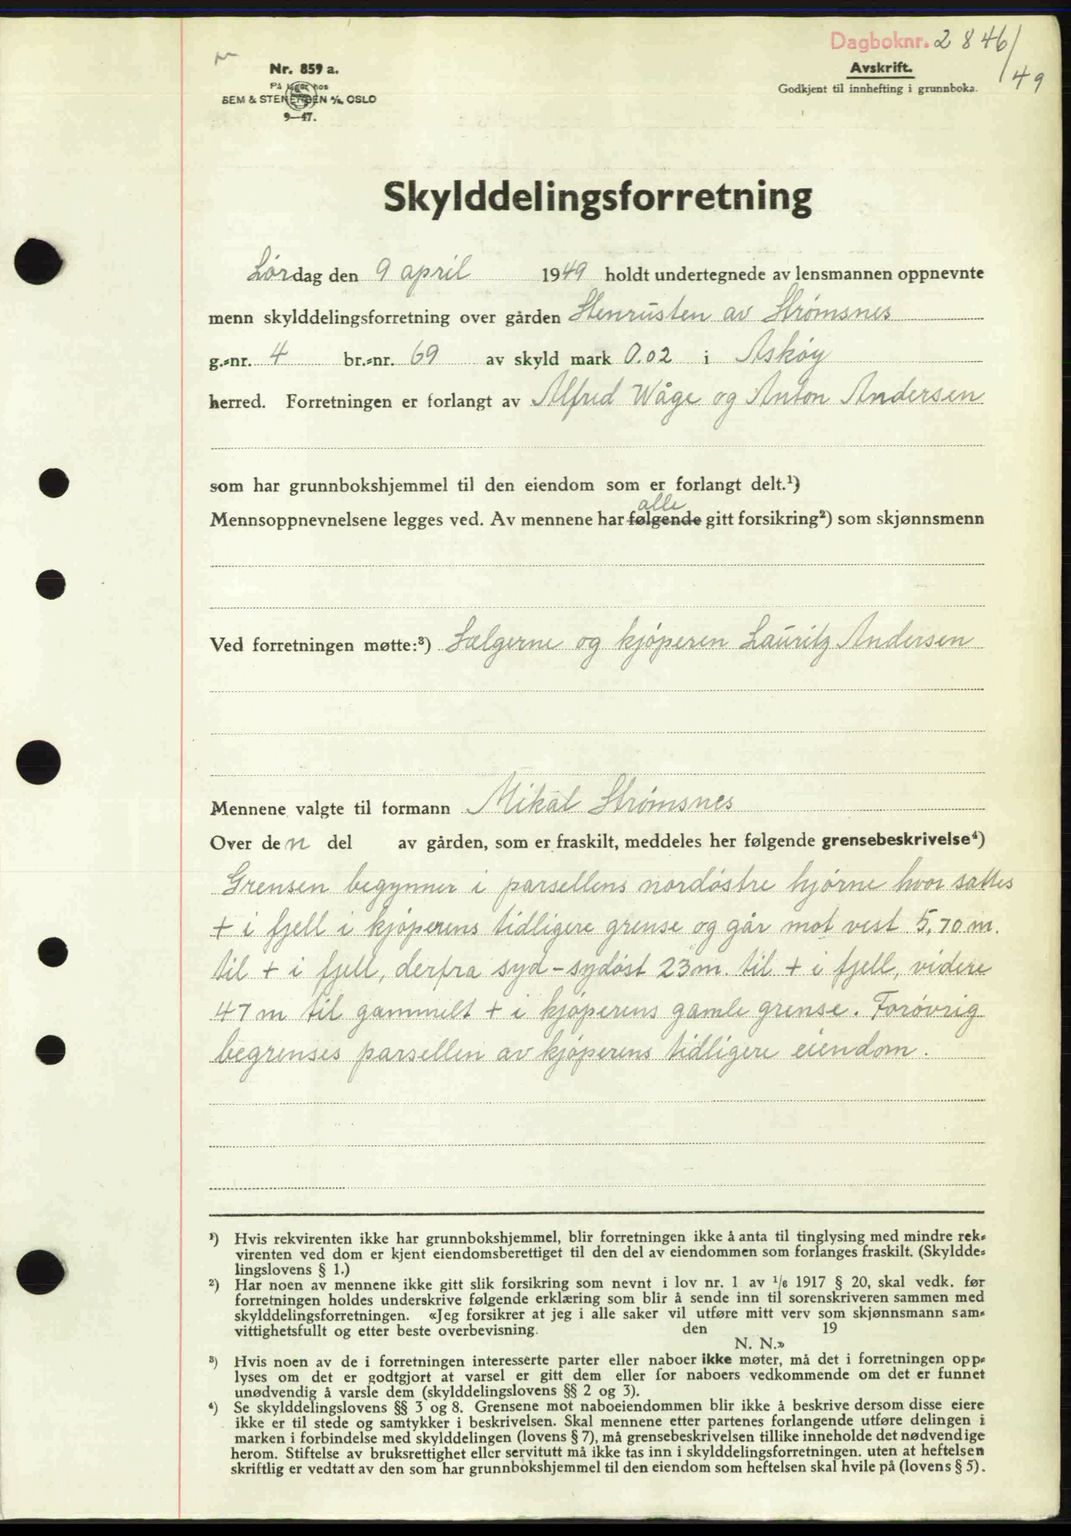 Dagboknr. 2846/49
Nr. 859 a.
På lager hos
SEM & STENERSEN A/S, OSLO
9—47.
Avskrift.
Godkjent til innhefting i grunnboka.
Skylddelingsforretning
Lørdag den 9 april 1949 holdt undertegnede av lensmannen oppnevnte
menn skylddelingsforretning over gården Stenrusten av Strømsnes
g.-nr. 4 br.-nr. 69 av skyld mark 0.02 i Askøy
herred. Forretningen er forlangt av Alfred Wåge og Anton Andersen
som har grunnbokshjemmel til den eiendom som er forlangt delt.¹)
alle
Mennsoppnevnelsene legges ved. Av mennene har følgende gitt forsikring²) som skjønnsmenn
Ved forretningen møtte:³) Sælgerne og kjøperen Lauritz Andersen
Mennene valgte til formann Mikal Strømsnes
Over den del av gården, som er fraskilt, meddeles her følgende grensebeskrivelse⁴)
Grensen begynner i parsellens nordøstre hjørne hvor sattes
+ i fjell i kjøperens tidligere grense og går mot vest 5,70 m.
til + i fjell, derfra syd-sydøst 23 m. til + i fjell, videre
47 m til gammelt + i kjøperens gamle grense. Forøvrig
begrenses parsellen av kjøperens tidligere eiendom.
¹) Hvis rekvirenten ikke har grunnbokshjemmel, blir forretningen ikke å anta til tinglysing med mindre rek-
virenten ved dom er kjent eiendomsberettiget til den del av eiendommen som forlanges fraskilt. (Skyldde-
lingslovens § 1.)
²) Har noen av mennene ikke gitt slik forsikring som nevnt i lov nr. 1 av 1/6 1917 § 20, skal vedk. før
forretningen holdes underskrive følgende erklæring som blir å sende inn til sorenskriveren sammen med
skylddelingsforretningen. «Jeg forsikrer at jeg i alle saker vil utføre mitt verv som skjønnsmann sam-
vittighetsfullt og etter beste overbevisning. den 19
N. N.»
³) Hvis noen av de i forretningen interesserte parter eller naboer ikke møter, må det i forretningen opp-
lyses om det er godtgjort at varsel er gitt dem eller for naboers vedkommende om det er funnet
unødvendig å varsle dem (skylddelingslovens §§ 2 og 3).
⁴) Se skylddelingslovens §§ 3 og 8. Grensene mot naboeiendommen blir ikke å beskrive dersom disse eiere
ikke er til stede og samtykker i beskrivelsen. Skal mennene etter partenes forlangende utføre delingen i
marken i forbindelse med skylddelingen (lovens § 7), må grensebeskrivelsen tillike inneholde det nødvendige
herom. Stiftelse av bruksrettighet eller servitutt må ikke tas inn i skylddelingsforretningen. uten at heftelsen
skriftlig er vedtatt av den som har grunnbokshjemmel til den eiendom som heftelsen skal hvile på (lovens § 5).